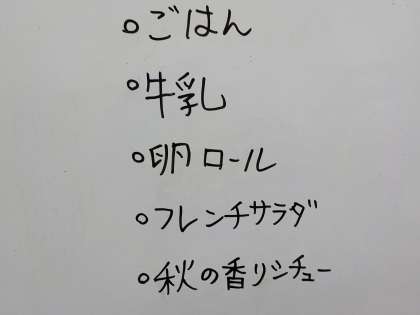 ○ごはん
○牛乳
○卵ロール
○フレンチサラダ
○秋の香りシチュー